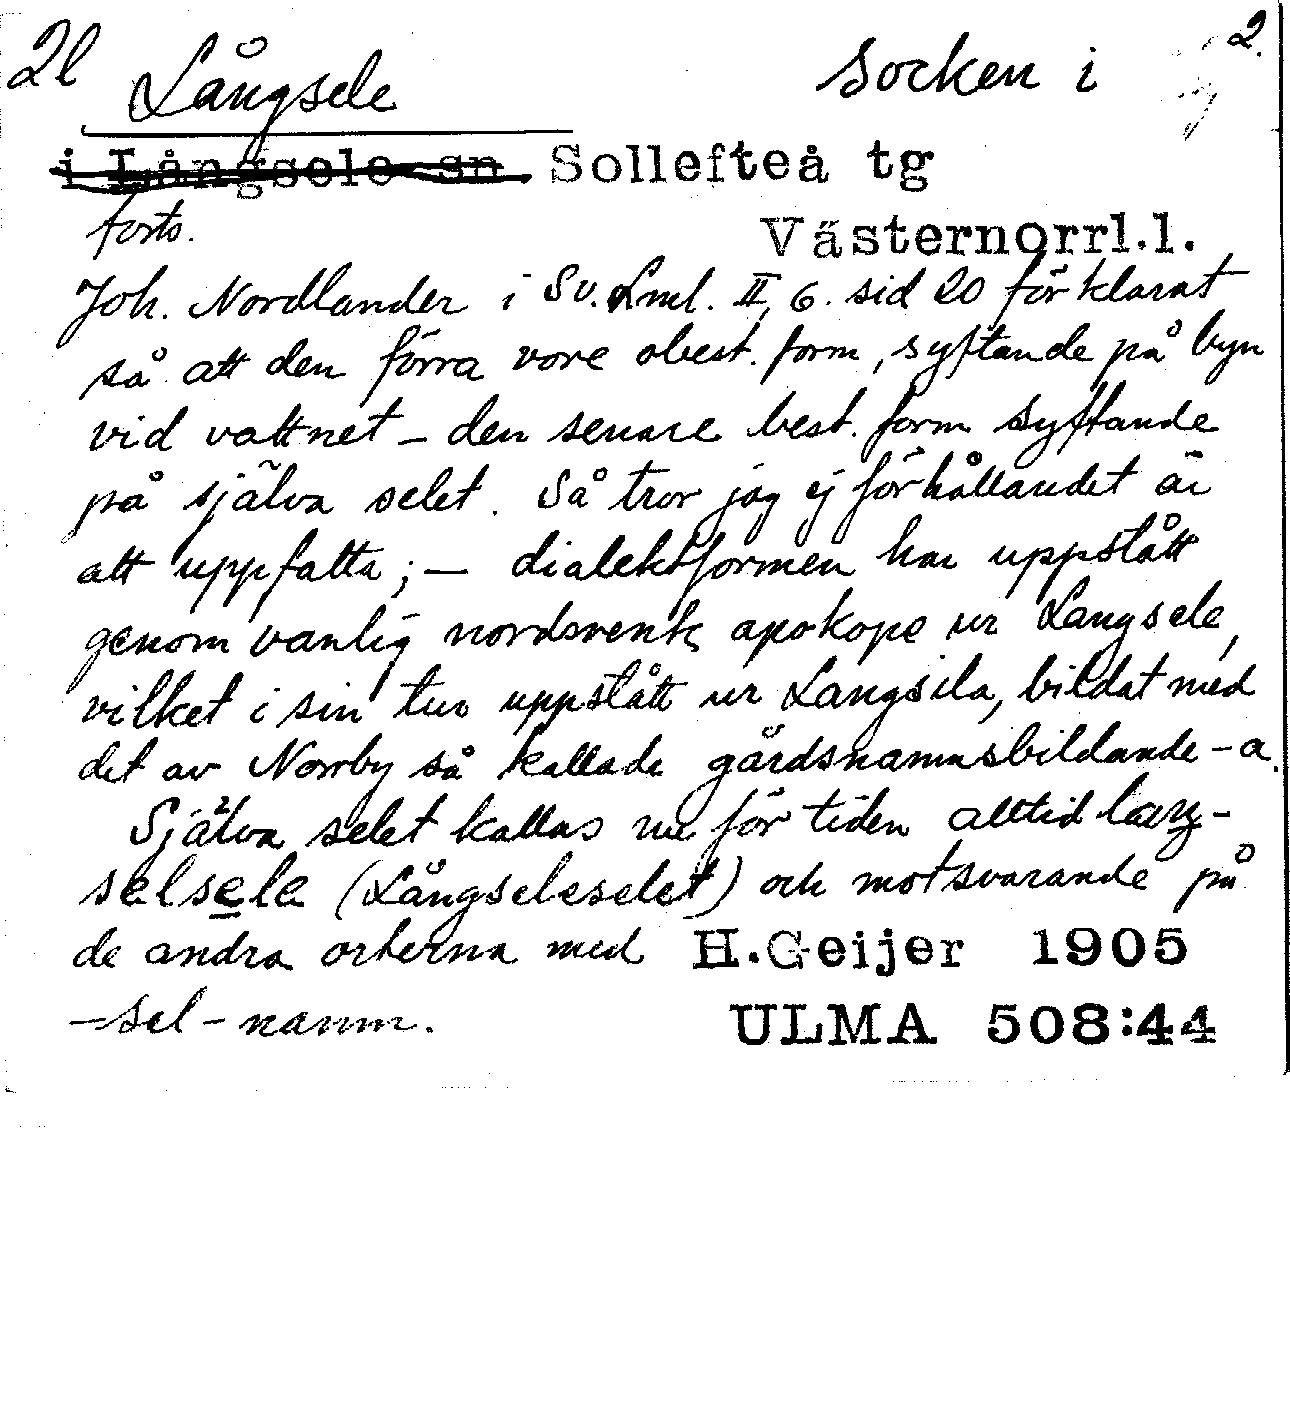 2l Långsele Socken i 2.
i Långsele sn. Sollefteå tg
forts. Västernorrl.l.
Joh. Nordlander i Sv. Lml. II, 6. sid 20 förklarat
så att den förra vore obest. form, syftande på byn
vid vattnet – den senare best. form syftande
på själva selet. Så tror jag ej förhållandet är
att uppfatta; – dialektformen har uppstått
genom vanlig nordsvensk apokope ur Langsele,
vilket i sin tur uppstått ur Langsila, bildat med
det av Norrby så kallade gårdsnamnsbildande -a.
Själva selet kallas nu för tiden alltid laŋ-
selsele (Långseleselet) och motsvarande på
de andra orterna med H.Geijer 1905
-sel-namn. ULMA 508:44